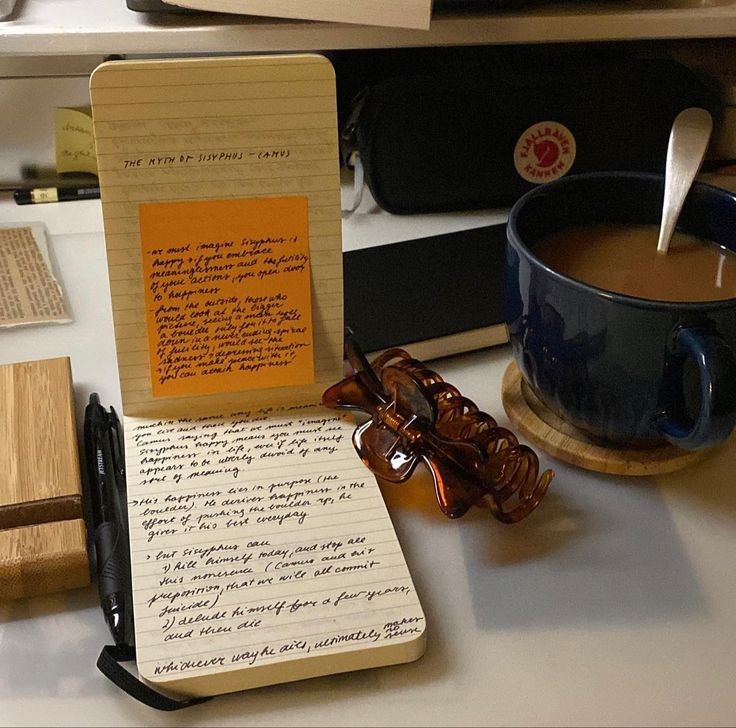 THE MYTH OF SISYPHUS - CAMUS
- we must imagine Sisyphus is
happy → if you embrace
meaninglessness and the futility
of your actions, you open door
to happiness
- from the outside, those who
would look at the bigger
picture, seeing a man
a boulder only for it to fall
down in a never ending spiral
of futility, would see the
sadness → depressing situation
→ if you make peace with it,
you can attain happiness
within the same way life is
you live and then you die.
Camus saying that we must "imagine"
Sisyphus happy means you must see
happiness in life, even if life itself
appears to be utterly devoid of any
sort of meaning
→ His happiness lies in purpose (the
boulder). He derives happiness in the
effort of pushing the boulder up, he
gives it his best everyday
> but Sisyphus can
1) kill himself today, and stop all
this nonsense (Camus and our
preposition, that we will all commit
suicide)
2) delude himself for a few years,
and then die
whichever way he dies, ultimately makes
no
sense
FJÄLLRÄVEN
KÅNKEN
JETSTREAM